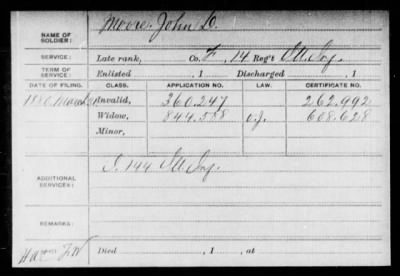 NAME OF SOLDIER: Moore, John D.
SERVICE: Late rank, Co. F, 14 Reg't Ill. Inf.
TERM OF SERVICE: Enlisted , 1 Discharged , 1
DATE OF FILING. CLASS. APPLICATION NO. LAW. CERTIFICATE NO.
1880 March Invalid, 360.247 262.992
Widow, 844.558 O.J. 608.628
Minor,
ADDITIONAL SERVICES: I. 144 Ill. Inf.
REMARKS:
Died , 1 , at